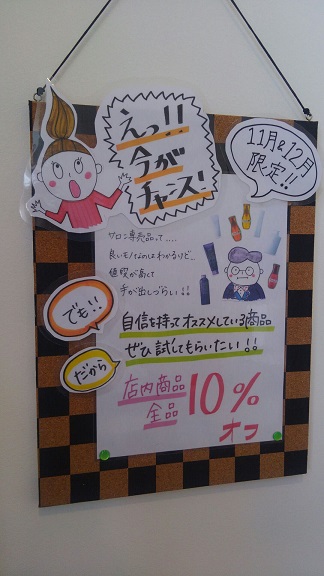 えっ!!
今が
チャンス!
11月&12月
限定!!
サロン専売品って……
良いモノなのはわかるけど…
値段が高くて
手が出しづらい!!
でも!!
自信を持ってオススメしている商品
ぜひ試してもらいたい!!
だから
店内商品
全品
10%
オフ